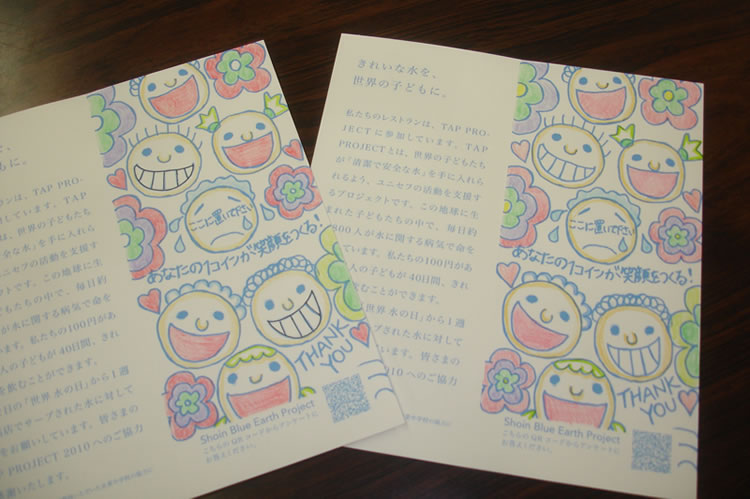 を、
もに。
ンは、TAP PRO-
しています。TAP
は、世界の子どもたち
な水」を手に入れら
ユニセフの活動を支援す
です。この地球に生
もたちの中で、毎日約
が水に関する病気で命を
ます。私たちの100円があ
人の子どもが40日間、きれ
を飲むことができます。
日の「世界 水の日」から1週
店でサーブされた水に対して
お願いしています。皆さまの
PROJECT 2010 へのご協力
いたします。
ここに置いて下さい
あなたの1コインが笑顔をつくる!
THANK
YOU
Shoin Blue Earth Project
こちらのQRコードからアンケートに
お答えください。
きれいな水を、
世界の子どもに。
私たちのレストランは、TAP PRO-
JECTに参加しています。TAP
PROJECTとは、世界の子どもたち
が「清潔で安全な水」を手に入れら
れるよう、ユニセフの活動を支援す
るプロジェクトです。この地球に生
まれた子どもたちの中で、毎日約
800人が水に関する病気で命を
ています。私たちの100円があ
人の子どもが40日間、きれ
むことができます。
世界 水の日」から1週
ーブされた水に対して
います。皆さまの
2010 へのご協力
ここに置いて下さい
あなたの1コインが笑顔をつくる!
THANK
YOU
Shoin Blue Earth Project
こちらのQRコードからアンケートに
お答えください。